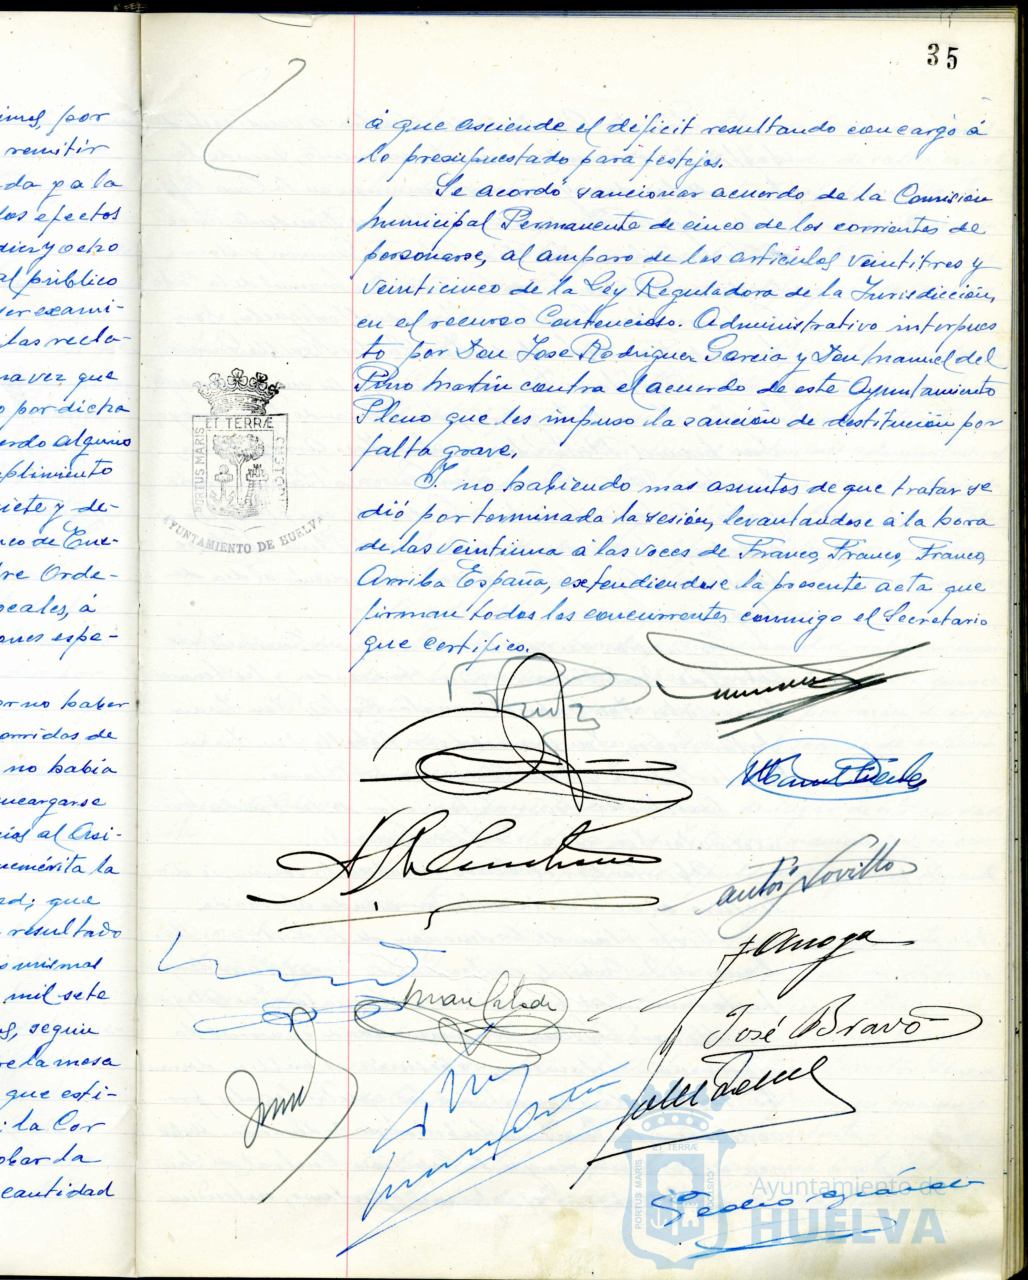 imas, por
remitir
da pa la
los efectos
diez y ocho
al público
ser exami-
itas recla-
na vez que
o por dicha
erdo alguno
mplimiento
iete y de-
nco de Ene-
re Orde-
ocales, á
ones espe-
or no haber
orridas de
no había
ncargarse
al Asi-
emérita la
ad; que
resultado
mismas
mil sete
según
re la mesa
que esti-
la Cor
obar la
cantidad
35
á que asciende el déficit resultando con cargo á
lo presupuestado para festejos.
Se acordó sancionar acuerdo de la Comisión
Municipal Permanente de cinco de los corrientes de
personarse, al amparo de los articulos veintitres y
veinticinco de la Ley Reguladora de la Jurisdicción,
en el recurso Contencioso-Administrativo interpues
to por Don Jose Rodriguez Garcia y Don Manuel del
Pino Martín contra el acuerdo de este Ayuntamiento
Pleno que les impuso la sanción de destitución por
falta grave.
Y no habiendo mas asuntos de que tratar se
dió por terminada la sesión, levantandose á la hora
de las veintiuna á las voces de Franco, Franco, Franco,
Arriba España, extendiendose la presente acta que
firman todos los concurrentes conmigo el Secretario
que certifico.
PORTUS MARIS ET TERRÆ CUSTODIA
AYUNTAMIENTO DE HUELVA
José Bravo
PORTUS MARIS ET TERRÆ CUSTODIA
Ayuntamiento de
HUELVA